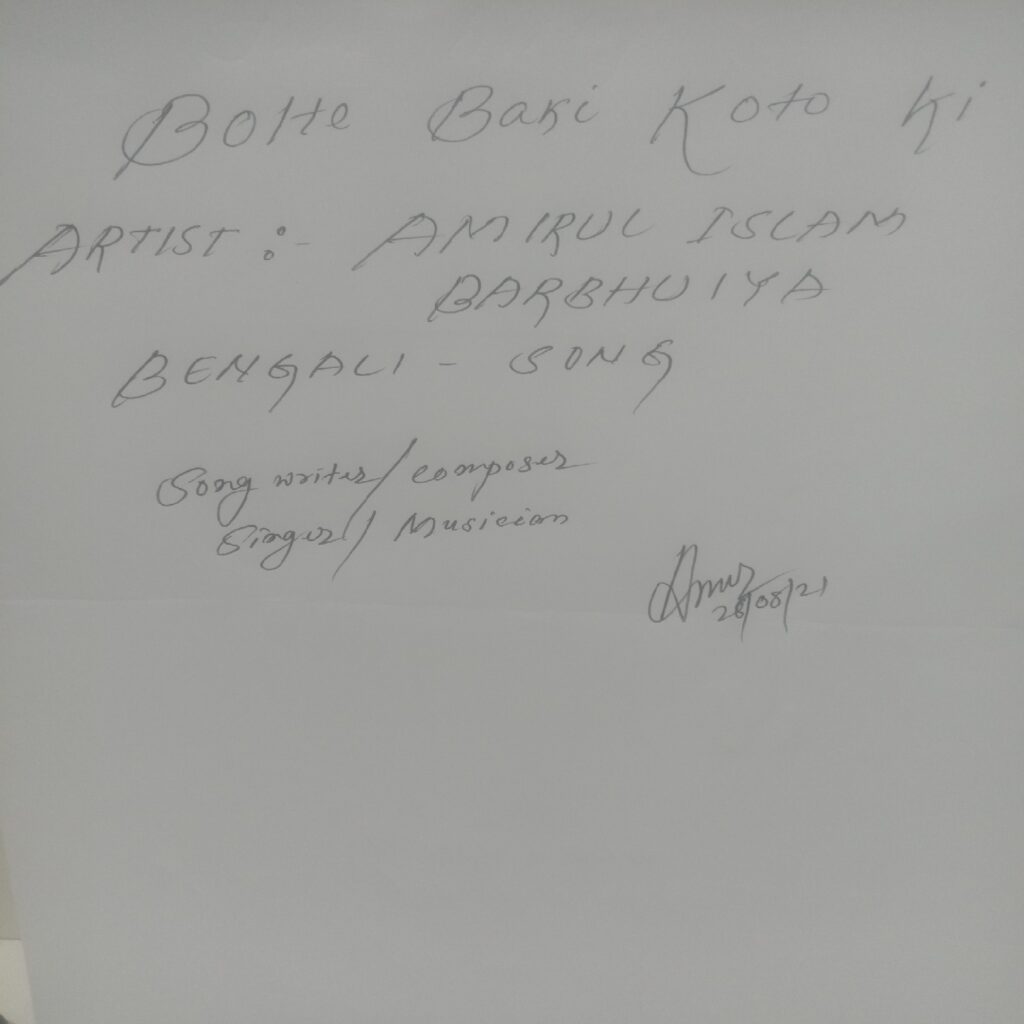 Bolte Baki Koto Ki
ARTIST :- AMIRUL ISLAM
BARBHUIYA
BENGALI - SONG
Song writer/composer
Singer/ Musician
Amir
28/08/21